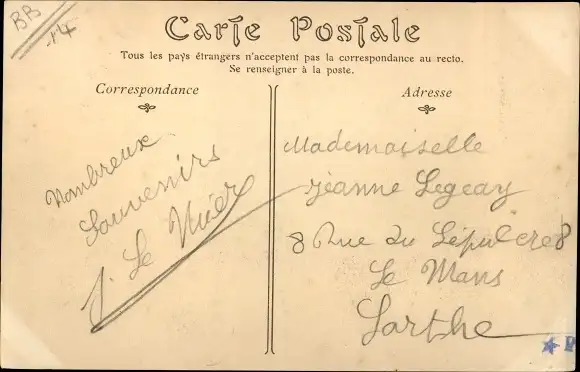 BB
14
Carte Postale
Tous les pays étrangers n'acceptent pas la correspondance au recto.
Se renseigner à la poste.
Correspondance
Nombreux
Souvenirs
J. Le Nuéz
Adresse
Mademoiselle
Jeanne Legeay
8 Rue du Sépulcre 8
Le Mans
Sarthe